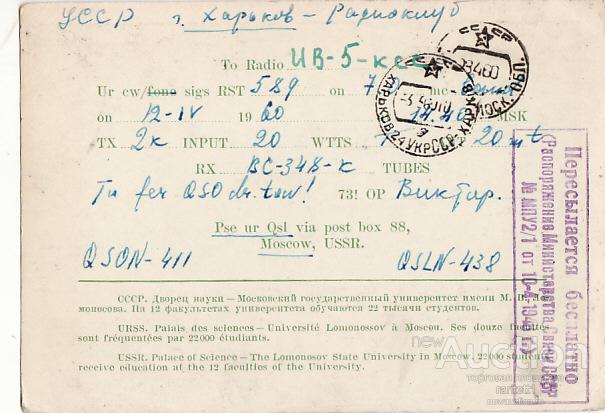 СССР г. Харьков - Радиоклуб
To Radio UB-5-KCC
Ur cw/fone sigs RST 589 on 7,0 mc
on 12-IV 1960 MSK
TX 2K INPUT 20 WTTS 20 mt
RX BC-348-K TUBES
Tu fer QSO dr. tow! 73! OP Виктор.
Pse ur Qsl via post box 88,
Moscow, USSR.
QSON-411 QSLN-438
СССР. Дворец науки — Московский государственный университет имени М. В. Ло-
моносова. На 12 факультетах университета обучаются 22 тысячи студентов.
URSS. Palais des sciences — Université Lomonossov à Moscou. Ses douze facultés
sont fréquentées par 22000 étudiants.
USSR. Palace of Science — The Lomonosov State University in Moscow. 22000 students
receive education at the 12 faculties of the University.
Пересылается бесплатно
(Распоряжение Министерства Связи СССР
ХАРЬКОВ 24 УКР.ССР
СССР
newAuction